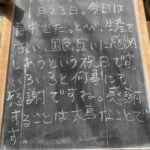 11月23日。今日は
勤労をたっとび、生産を
祝い、国民互いに感謝
しあうという祝日です。
いろいろと何事にも
感謝ですね。感謝
することは大事なことで
す。